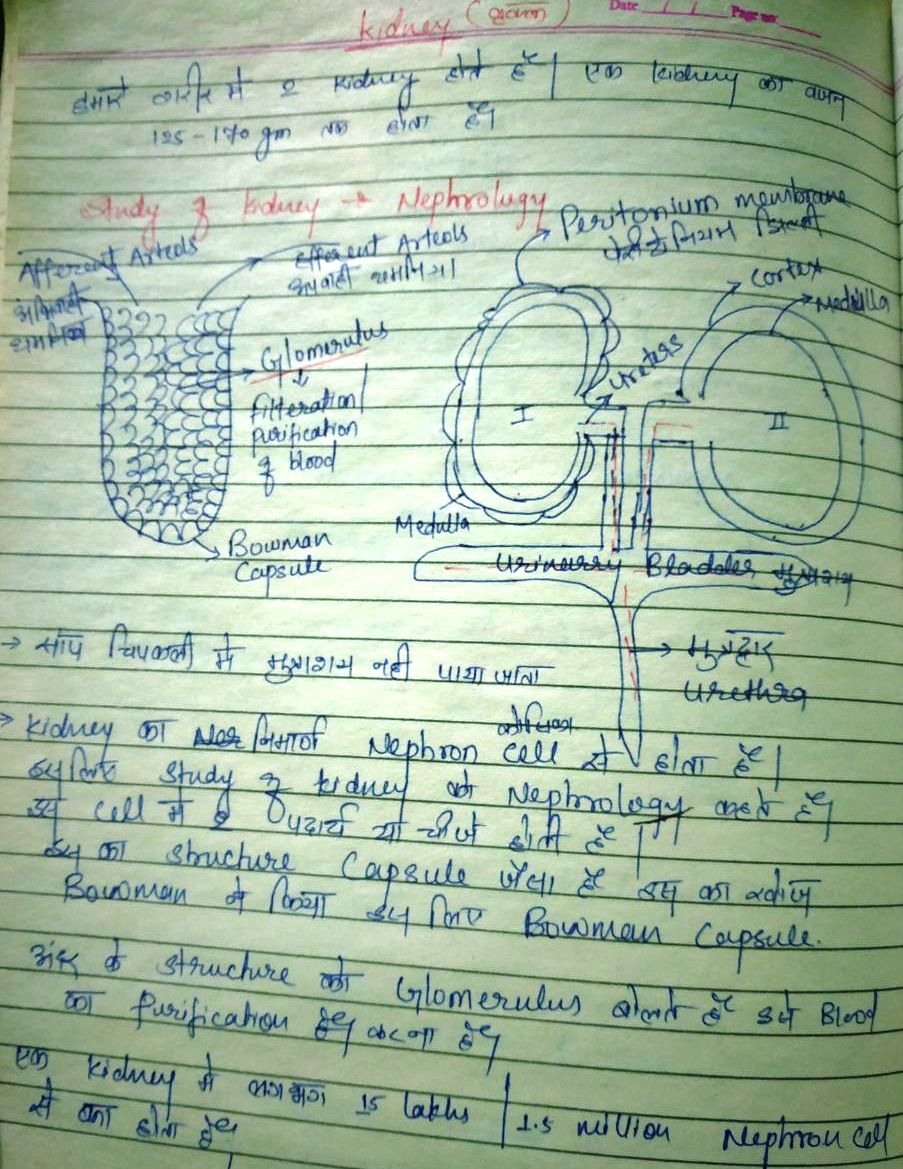 Date / / Page no
Kidney (वृक्क)
हमारे शरीर मे 2 kidney होते हैं| एक kidney का वजन
125-170 gm तक होता है|
Study of kidney → Nephrology
Afferent Arteols
अभिवाही
धमनिका
Efferent Arteols
अपवाही धमनिया|
Glomerulus
↓
filteration/
purification
of blood
Bowman
Capsule
Peritonium membrane
पेरीटोनियम झिल्ली
Cortex
Medulla
Ureters
I
II
Medulla
Urinarry Bladder मुत्राशय
मुत्रद्वार
Urethra
→ सांप छिपकली मे मुत्राशय नही पाया जाता
→ kidney का निर्माण Nephron कोशिका cell से होता है|
इस लिए study of kidney को Nephrology कहते है|
इस cell मे 2 पदार्थ या चीजे होती हैं|
इस का structure Capsule जैसा है इस का खोज
Bowman ने किया इस लिए Bowman Capsule.
अंदर के structure को Glomerulus बोलते हैं इसे Blood
का Purification हेतु करना है|
एक kidney मे लगभग 15 lakhs / 1.5 million Nephron cell
से बना होता है|